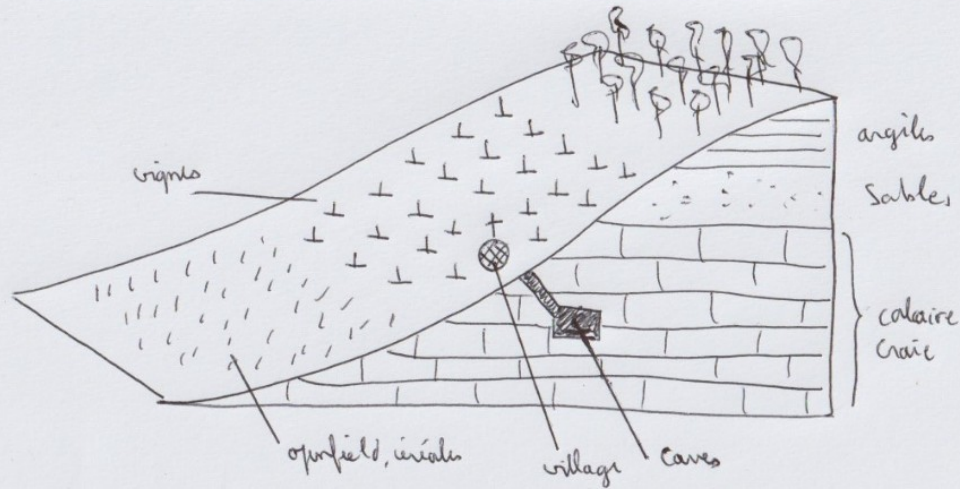 argiles
vignes
Sables
calcaire
craie
openfield, céréales
village
caves